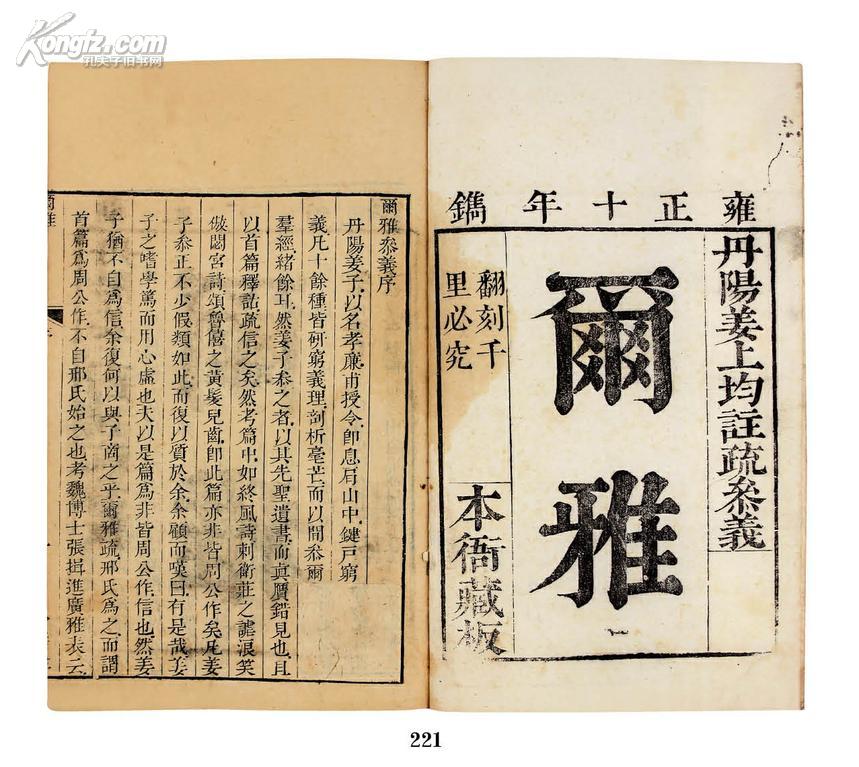 Kongfz.com
孔夫子旧书网
雍正十年鐫
丹陽姜上均註疏叅義
爾雅
翻刻千
里必究
本衙藏板
爾雅叅義序
丹陽姜子以名孝廉甫授令卽息肩山中鍵戸窮
義凡十餘種皆研窮義理剖析毫芒而以閒叅爾
羣經緒餘耳然姜子叅之者以其先聖遺書而真贋錯見也且
以首篇釋詁疏信之矣然考篇中如終風詩刺衛莊之謔浪笑
傲閟宮詩頌魯僖之黃髮兒齒卽此篇亦非皆周公作矣凡姜
子叅正不少假類如此而復以質於余余顧而嘆曰有是哉姜
子之嗜學篤而用心虛也夫以是篇為非皆周公作信也然姜
子猶不自為信余復何以與子商之乎爾雅疏邢氏為之而謂
首篇為周公作不自邢氏始之也考魏博士張揖進廣雅表云
爾雅
221